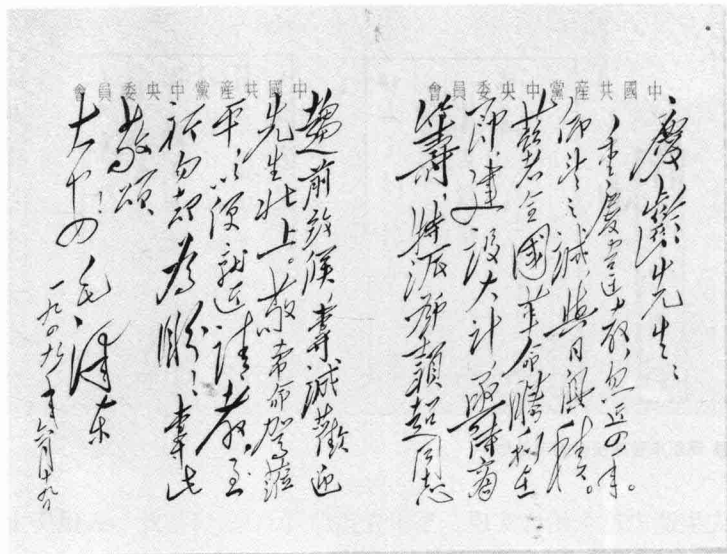 中國共產黨中央委員會
慶齡先生:
重慶違教,忽近四年。
仰望之誠,與日俱積。
茲者全國革命勝利在
即,建設大計,亟待商
籌,特派鄧穎超同志
中國共產黨中央委員會
趨前致候,專誠歡迎
先生北上。敬希命駕蒞
平,以便就近請教,至
祈勿却為盼!專此
敬頌
大安!毛澤東
一九四九年六月十九日